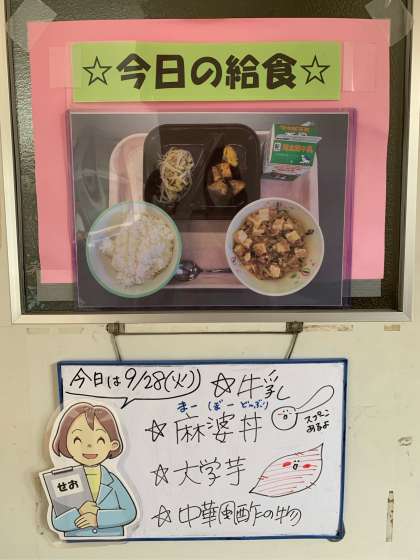 ☆今日の給食☆
今日は9/28(火)) ☆牛乳
まーぼーどんぶり
☆麻婆丼
スプーン
あるよ
☆大学芋
☆中華風酢の物
せお